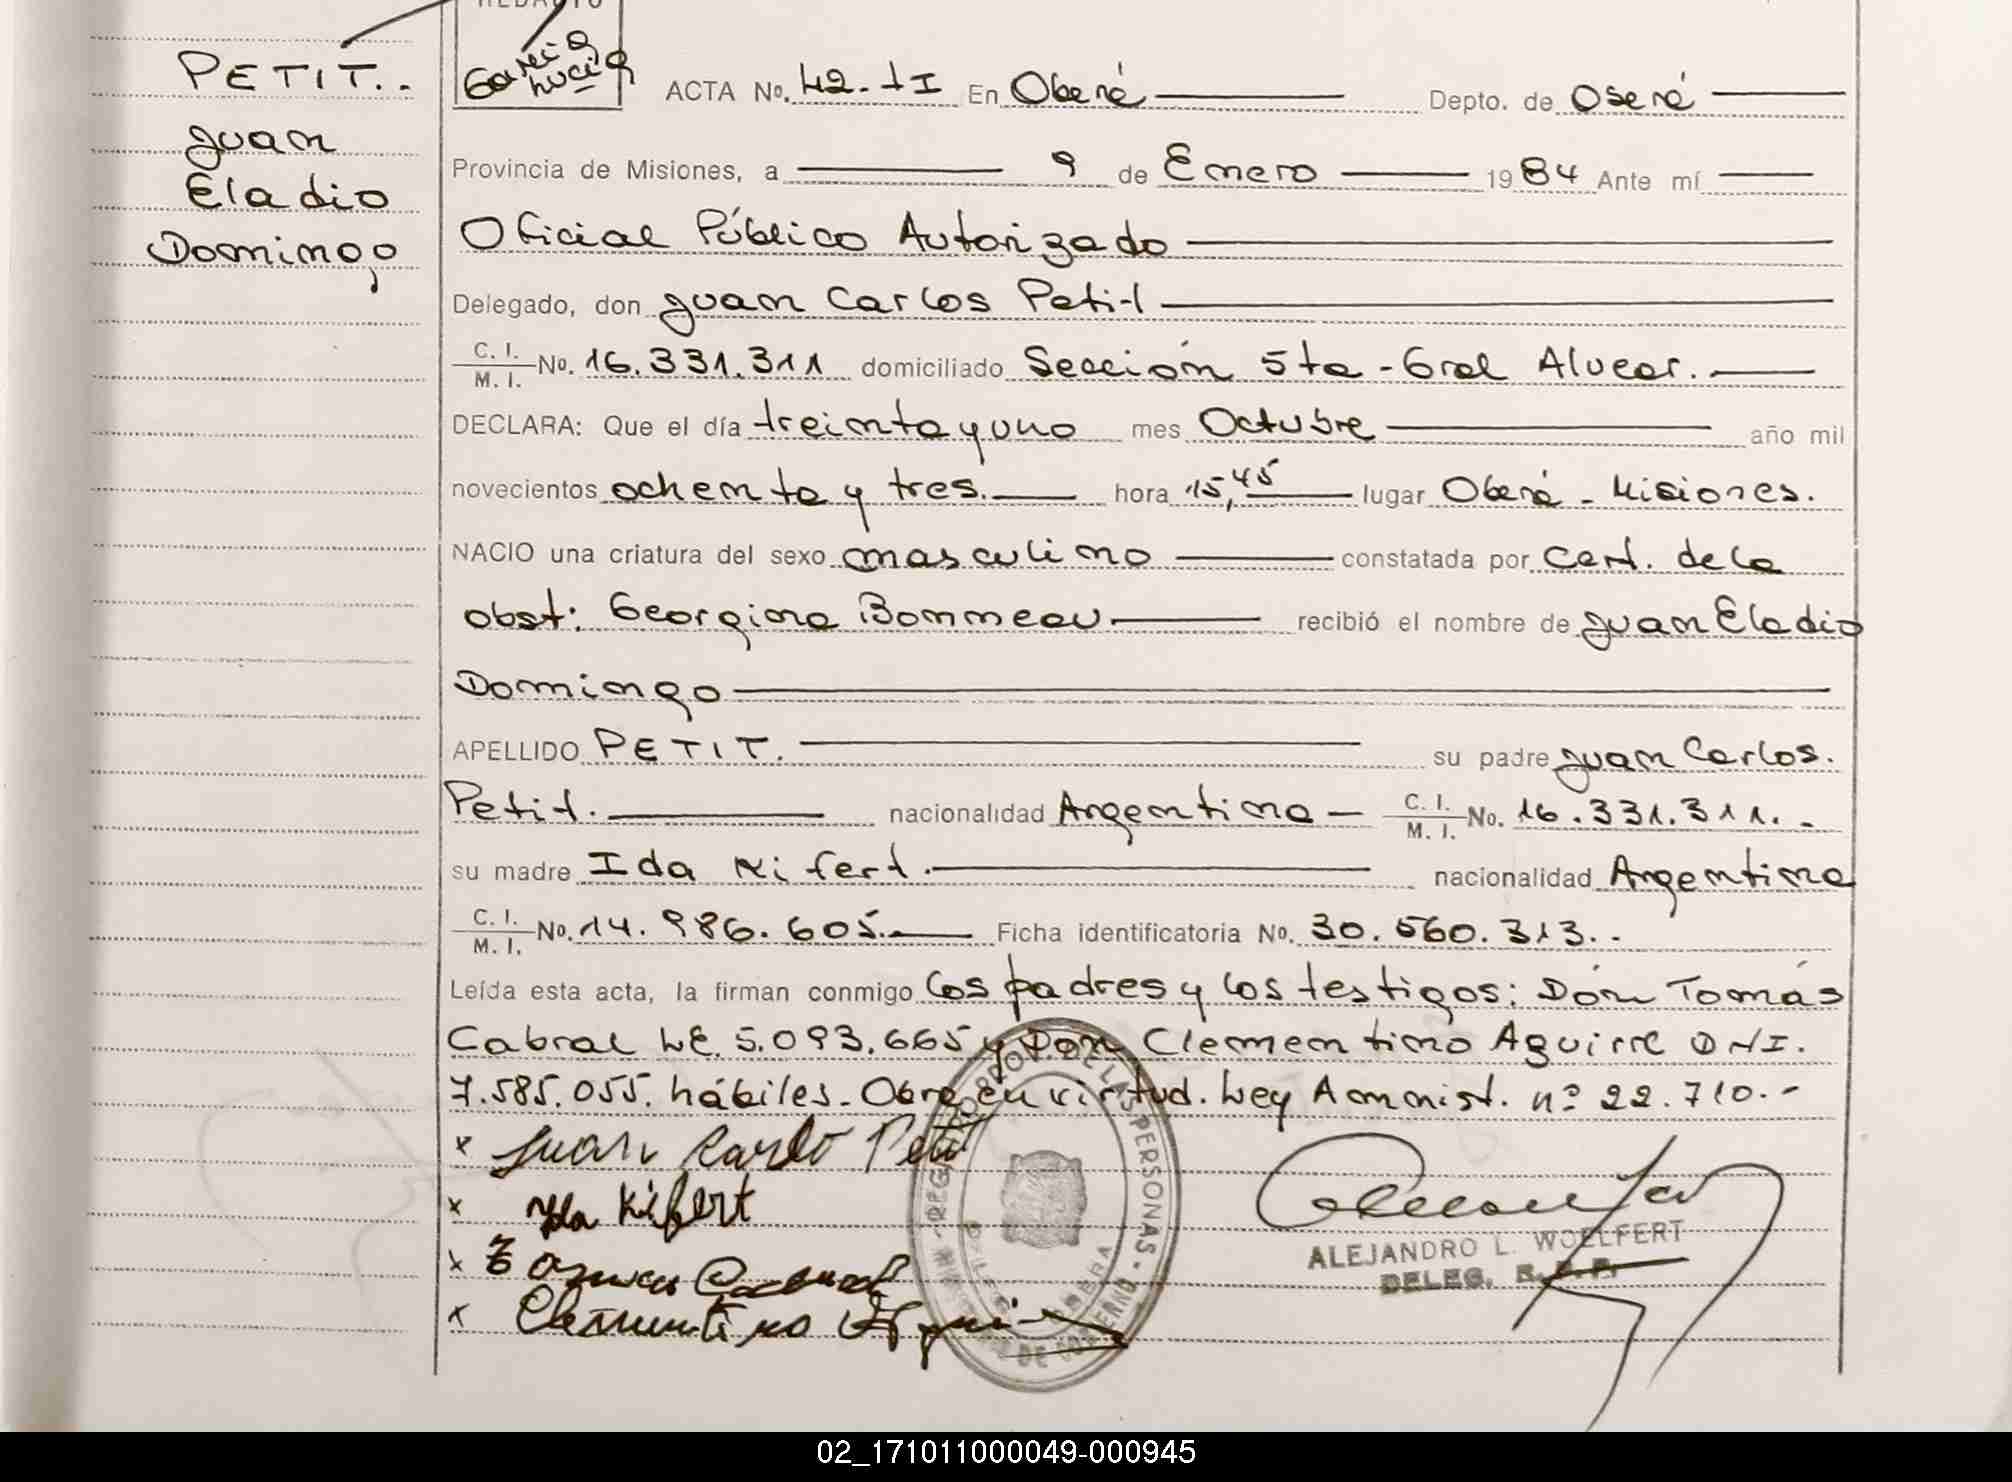 REDACTO
PETIT..
Juan
Eladio
Domingo
García
Lucía
ACTA No. 42-1I En Oberá Depto. de Oberá
Provincia de Misiones, a 9 de Enero 1984 Ante mí
Oficial Público Autorizado
Delegado, don Juan Carlos Petit
C. I. / M. I. No. 16.331.311 domiciliado Sección 5ta - Gral Alvear.
DECLARA: Que el día treinta y uno mes Octubre año mil
novecientos ochenta y tres. hora 15,45 lugar Oberá - Misiones.
NACIO una criatura del sexo masculino constatada por Cert. de la
obst: Georgina Bonneau recibió el nombre de Juan Eladio
Domingo
APELLIDO PETIT. su padre Juan Carlos.
Petit. nacionalidad Argentina C. I. / M. I. No. 16.331.311. -
su madre Ida Kifert. nacionalidad Argentina
C. I. / M. I. No. 14.986.605. Ficha identificatoria No. 30.560.313. -
Leída esta acta, la firman conmigo los padres y los testigos: Dón Tomás
Cabral LE. 5.093.665 y Don Clementino Aguirre DNI.
7.585.055. hábiles. Obra en virtud. Ley Amnist. nº 22.710. -
x Juan Carlo Petit
x Ida Kifert
x Tomas Cabral
x Clementino Aguirre
REGISTRO PROV. DE LAS PERSONAS - MINISTERIO DE GOBIERNO
OBERA
ALEJANDRO L. WOELFERT
DELEG. R. P. P.
02_171011000049-000945